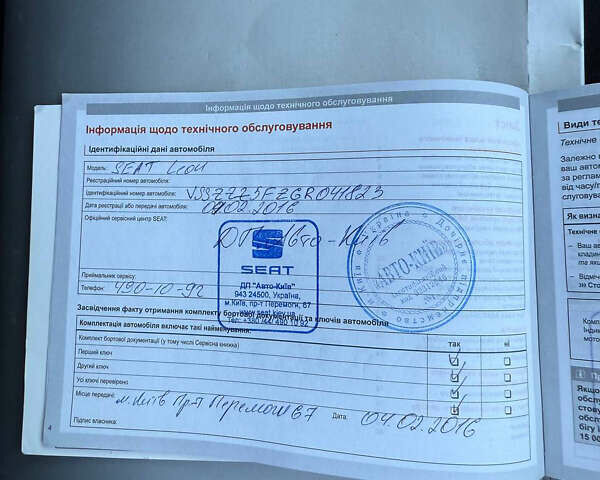 Інформація щодо технічного обслуговування
Інформація щодо технічного обслуговування
Ідентифікаційні дані автомобіля
Модель: SEAT Leon
Реєстраційний номер автомобіля:
Ідентифікаційний номер автомобіля: VSSZZZ5FZGR041823
Дата реєстрації або передачі автомобіля: 04.02.2016
Офіційний сервісний центр SEAT: ДП "Авто-Київ"
SEAT
ДП "Авто-Київ"
943 24500, Україна,
м.Київ, пр-т Перемоги, 67
www.seat.kiev.ua
Тел: +380 (44) 490 10 92
Україна
Дочірнє підприємство
"АВТО-КИЇВ"
Приймальник сервісу:
Телефон: 490-10-92
Засвідчення факту отримання комплекту бортової документації та ключів автомобіля
Комплектація автомобіля включає такі найменування:
так ні
Комплект бортової документації (у тому числі Сервісна книжка)
Перший ключ
Другий ключ
Усі ключі перевірено
Місце передачі: м. Київ Пр-т Перемоги 67 Дата: 04.02.2016
Підпис власника:
4
Види те
Технічне
Залежно
ваш автом
за реглам
від часу/п
слуговува
Як визна
Технічне
– Ваш ав
кладин
та якщ
– Відміч
не Сто
Компл
Індив
мото
Якщо
обслу
стову
обслу
бігу і
15 00